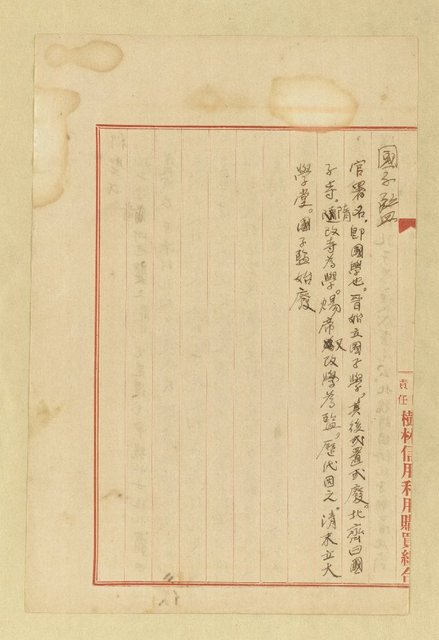 責任 樹林信用利用購買組合
國子監
官署名。即國學也。晉始立國子學,其後或置或廢。北齊曰國
子寺。隋改寺為學。煬帝又改學為監。歷代因之。清末立大
學堂。國子監始廢